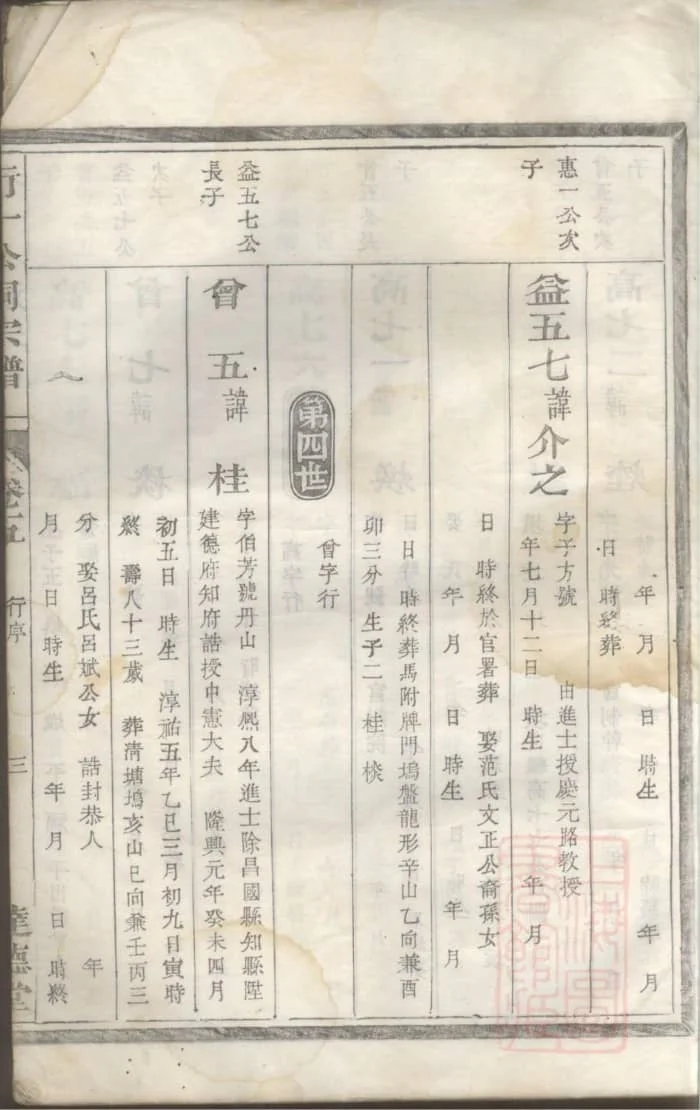 年月　日時生　年月
日　時終葬
惠一公次
子
益五七諱介之
字子方號　由進士授慶元路教授
年七月十二日　時生　年　月
日　時終於官署葬　娶范氏文正公裔孫女
年　月　日　時生　年　月
日　時終葬馬附牌門塢盤龍形辛山乙向兼酉
卯三分生子二桂棪
第四世
曾字行
益五七公
長子
曾五諱桂
字伯芳號丹山　淳熙八年進士除昌國縣知縣陞
建德府知府誥授中憲大夫　隆興元年癸未四月
初五日　時生　淳祐五年乙巳三月初九日寅時
終　壽八十三歲　葬清塘塢亥山巳向兼壬丙三
分　娶呂氏呂斌公女　誥封恭人　年
月　日　時生　年　月　日　時終
公祠宗譜
行序
三
達德堂